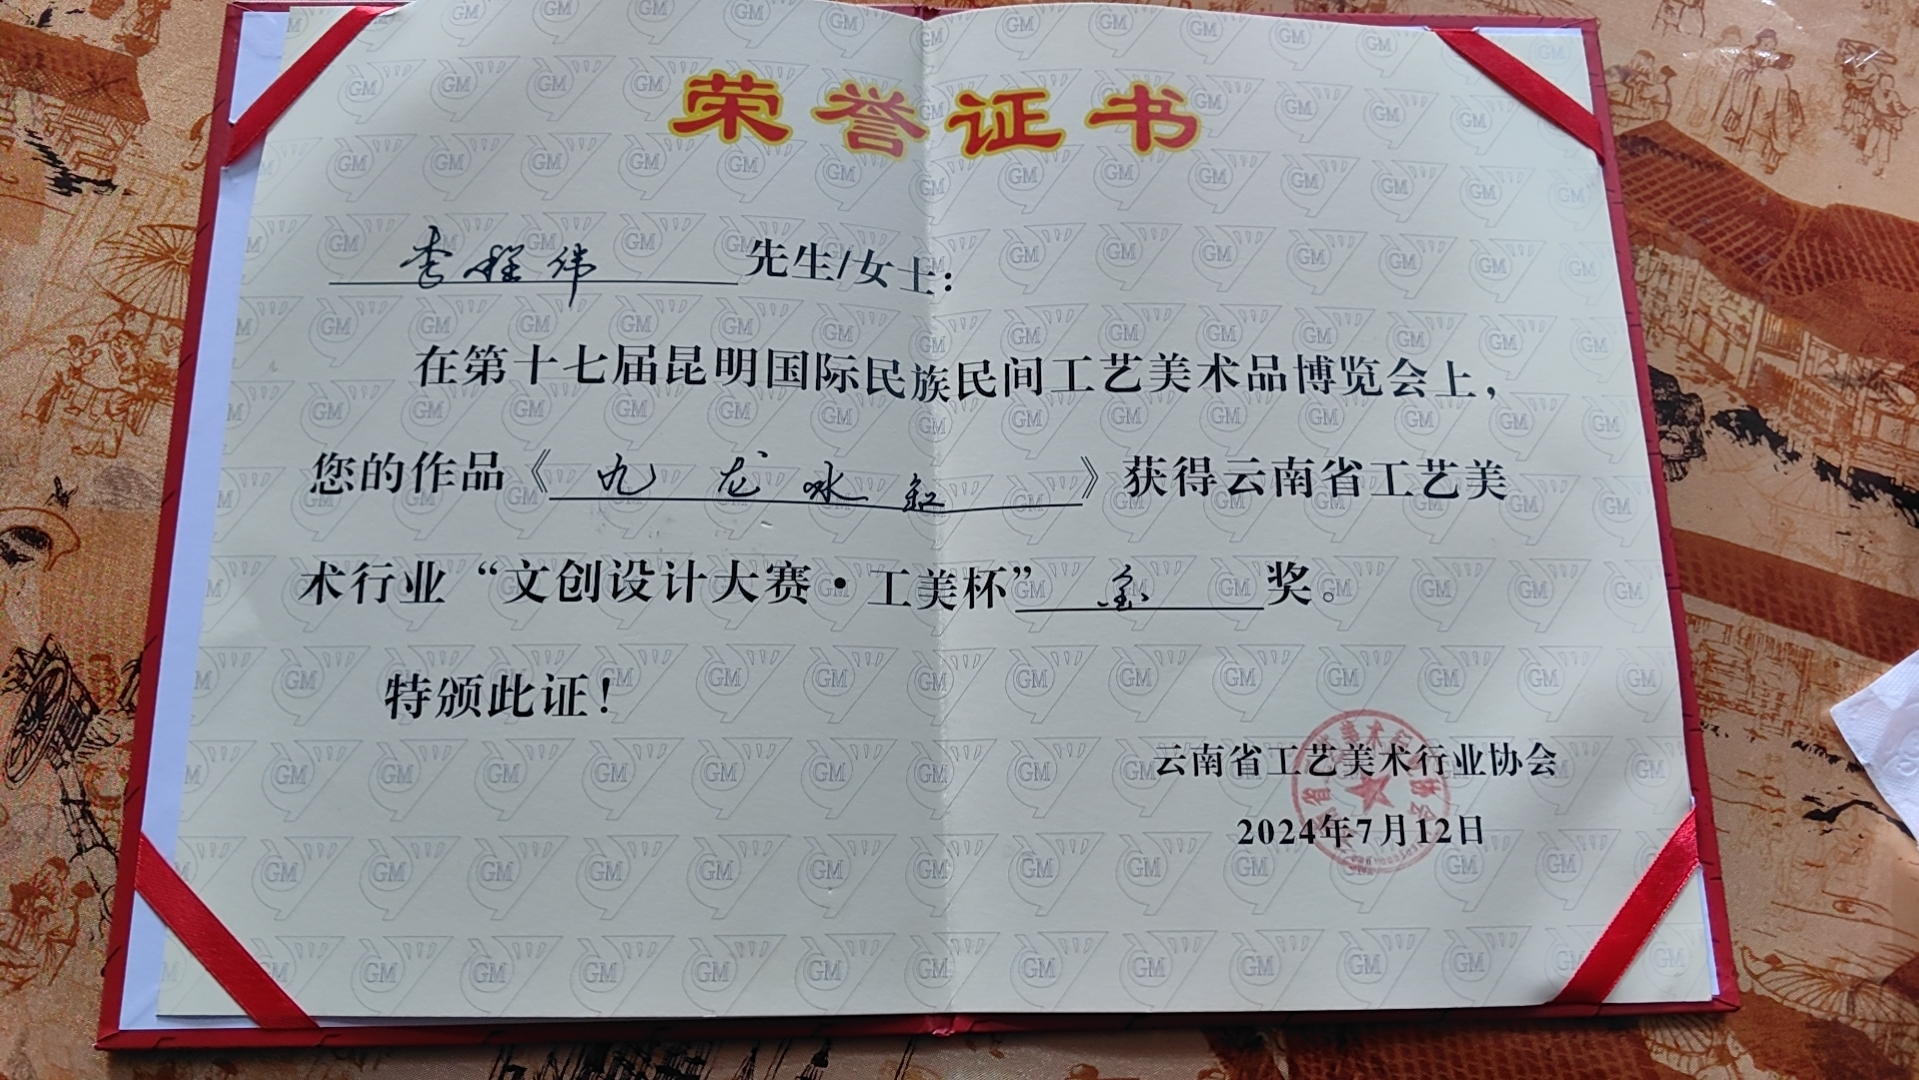 荣誉证书
李程伟 先生/女士：
在第十七届昆明国际民族民间工艺美术品博览会上，
您的作品《九龙冰缸》获得云南省工艺美
术行业“文创设计大赛·工美杯”金奖。
特颁此证！
云南省工艺美术行业协会
2024年7月12日
GM